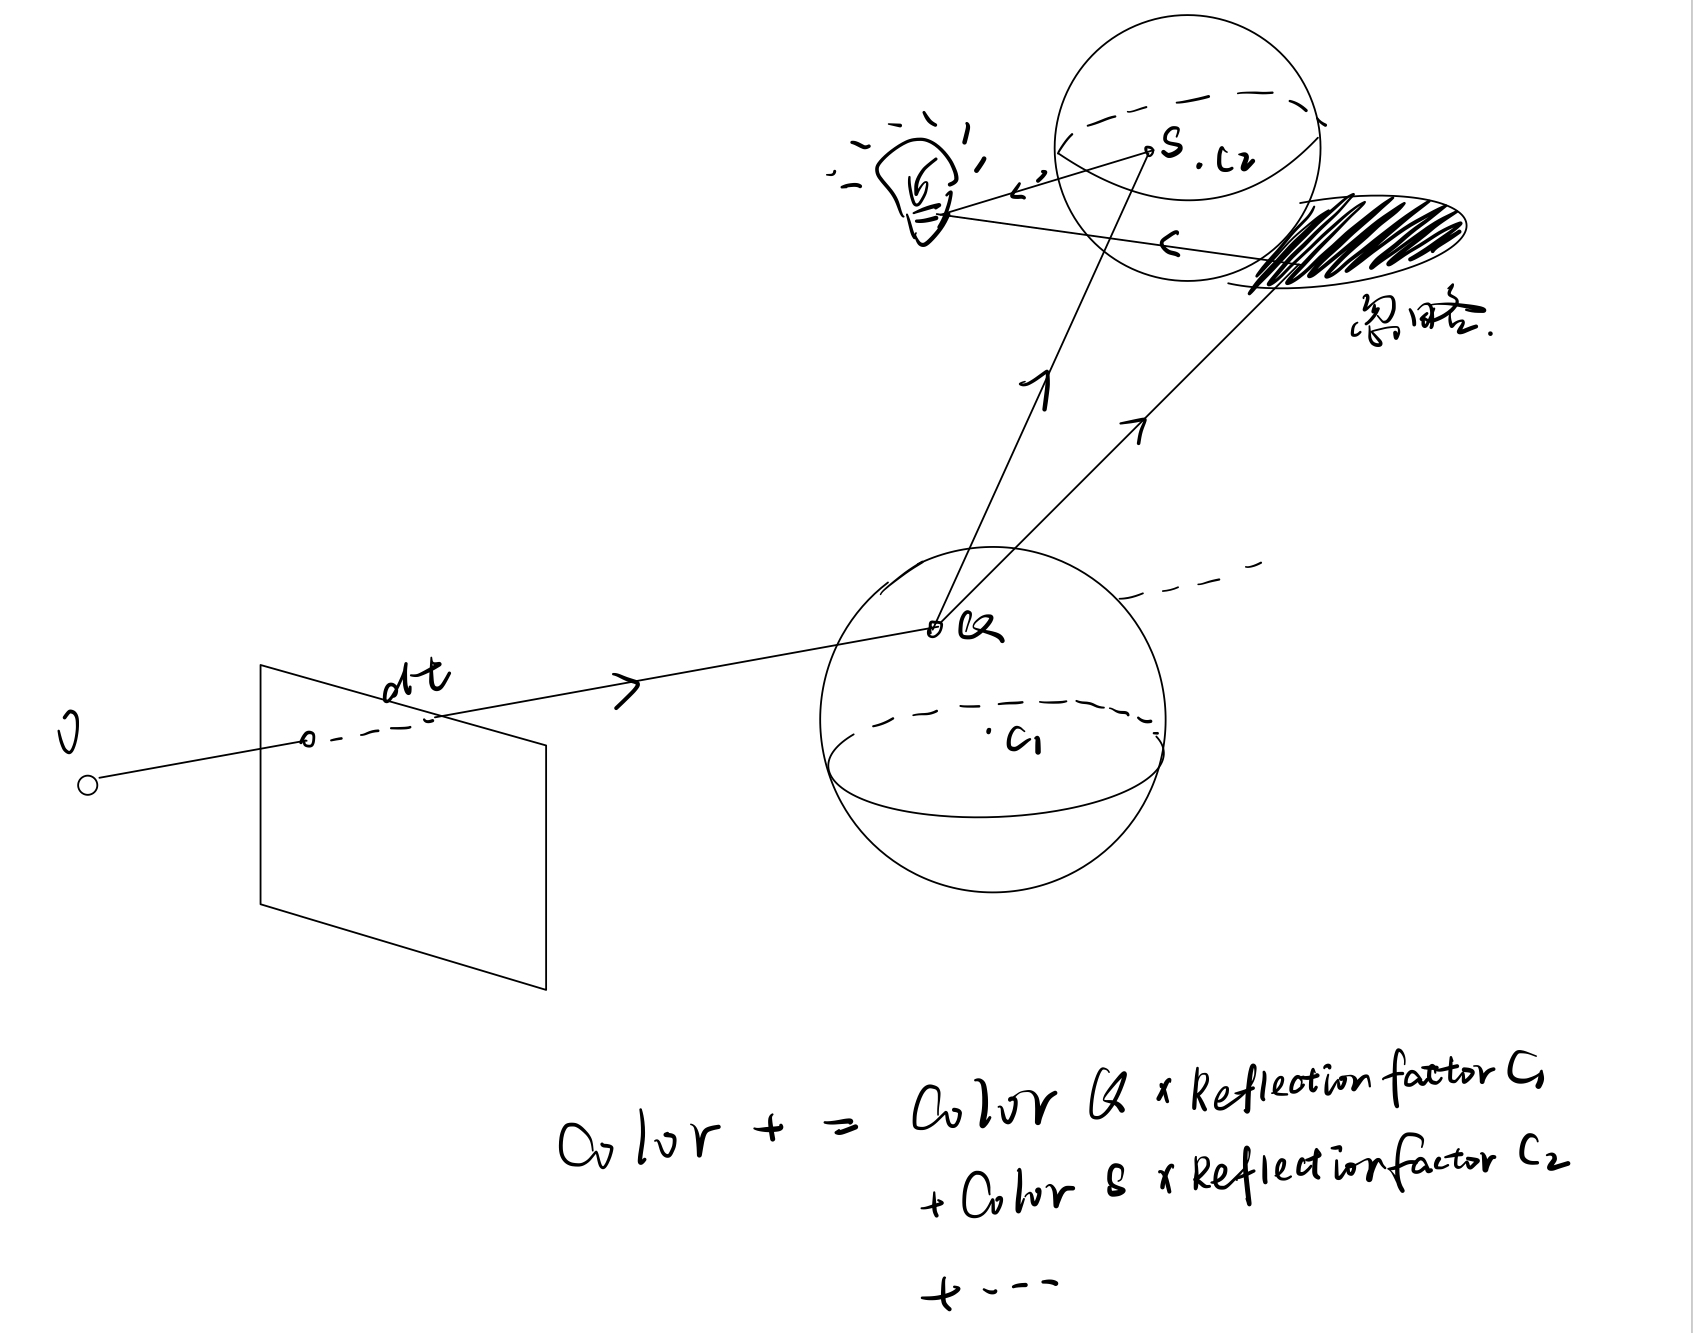 S
. C2
忽略.
Q
dt
O
. C1
Color += Color Q x Reflection factor C1
+ Color S x Reflection factor C2
+ ----